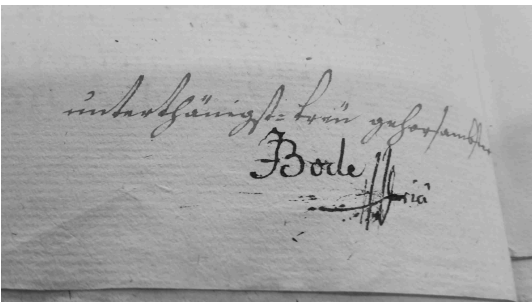 unterthänigst=treu gehorsambster
JBorle